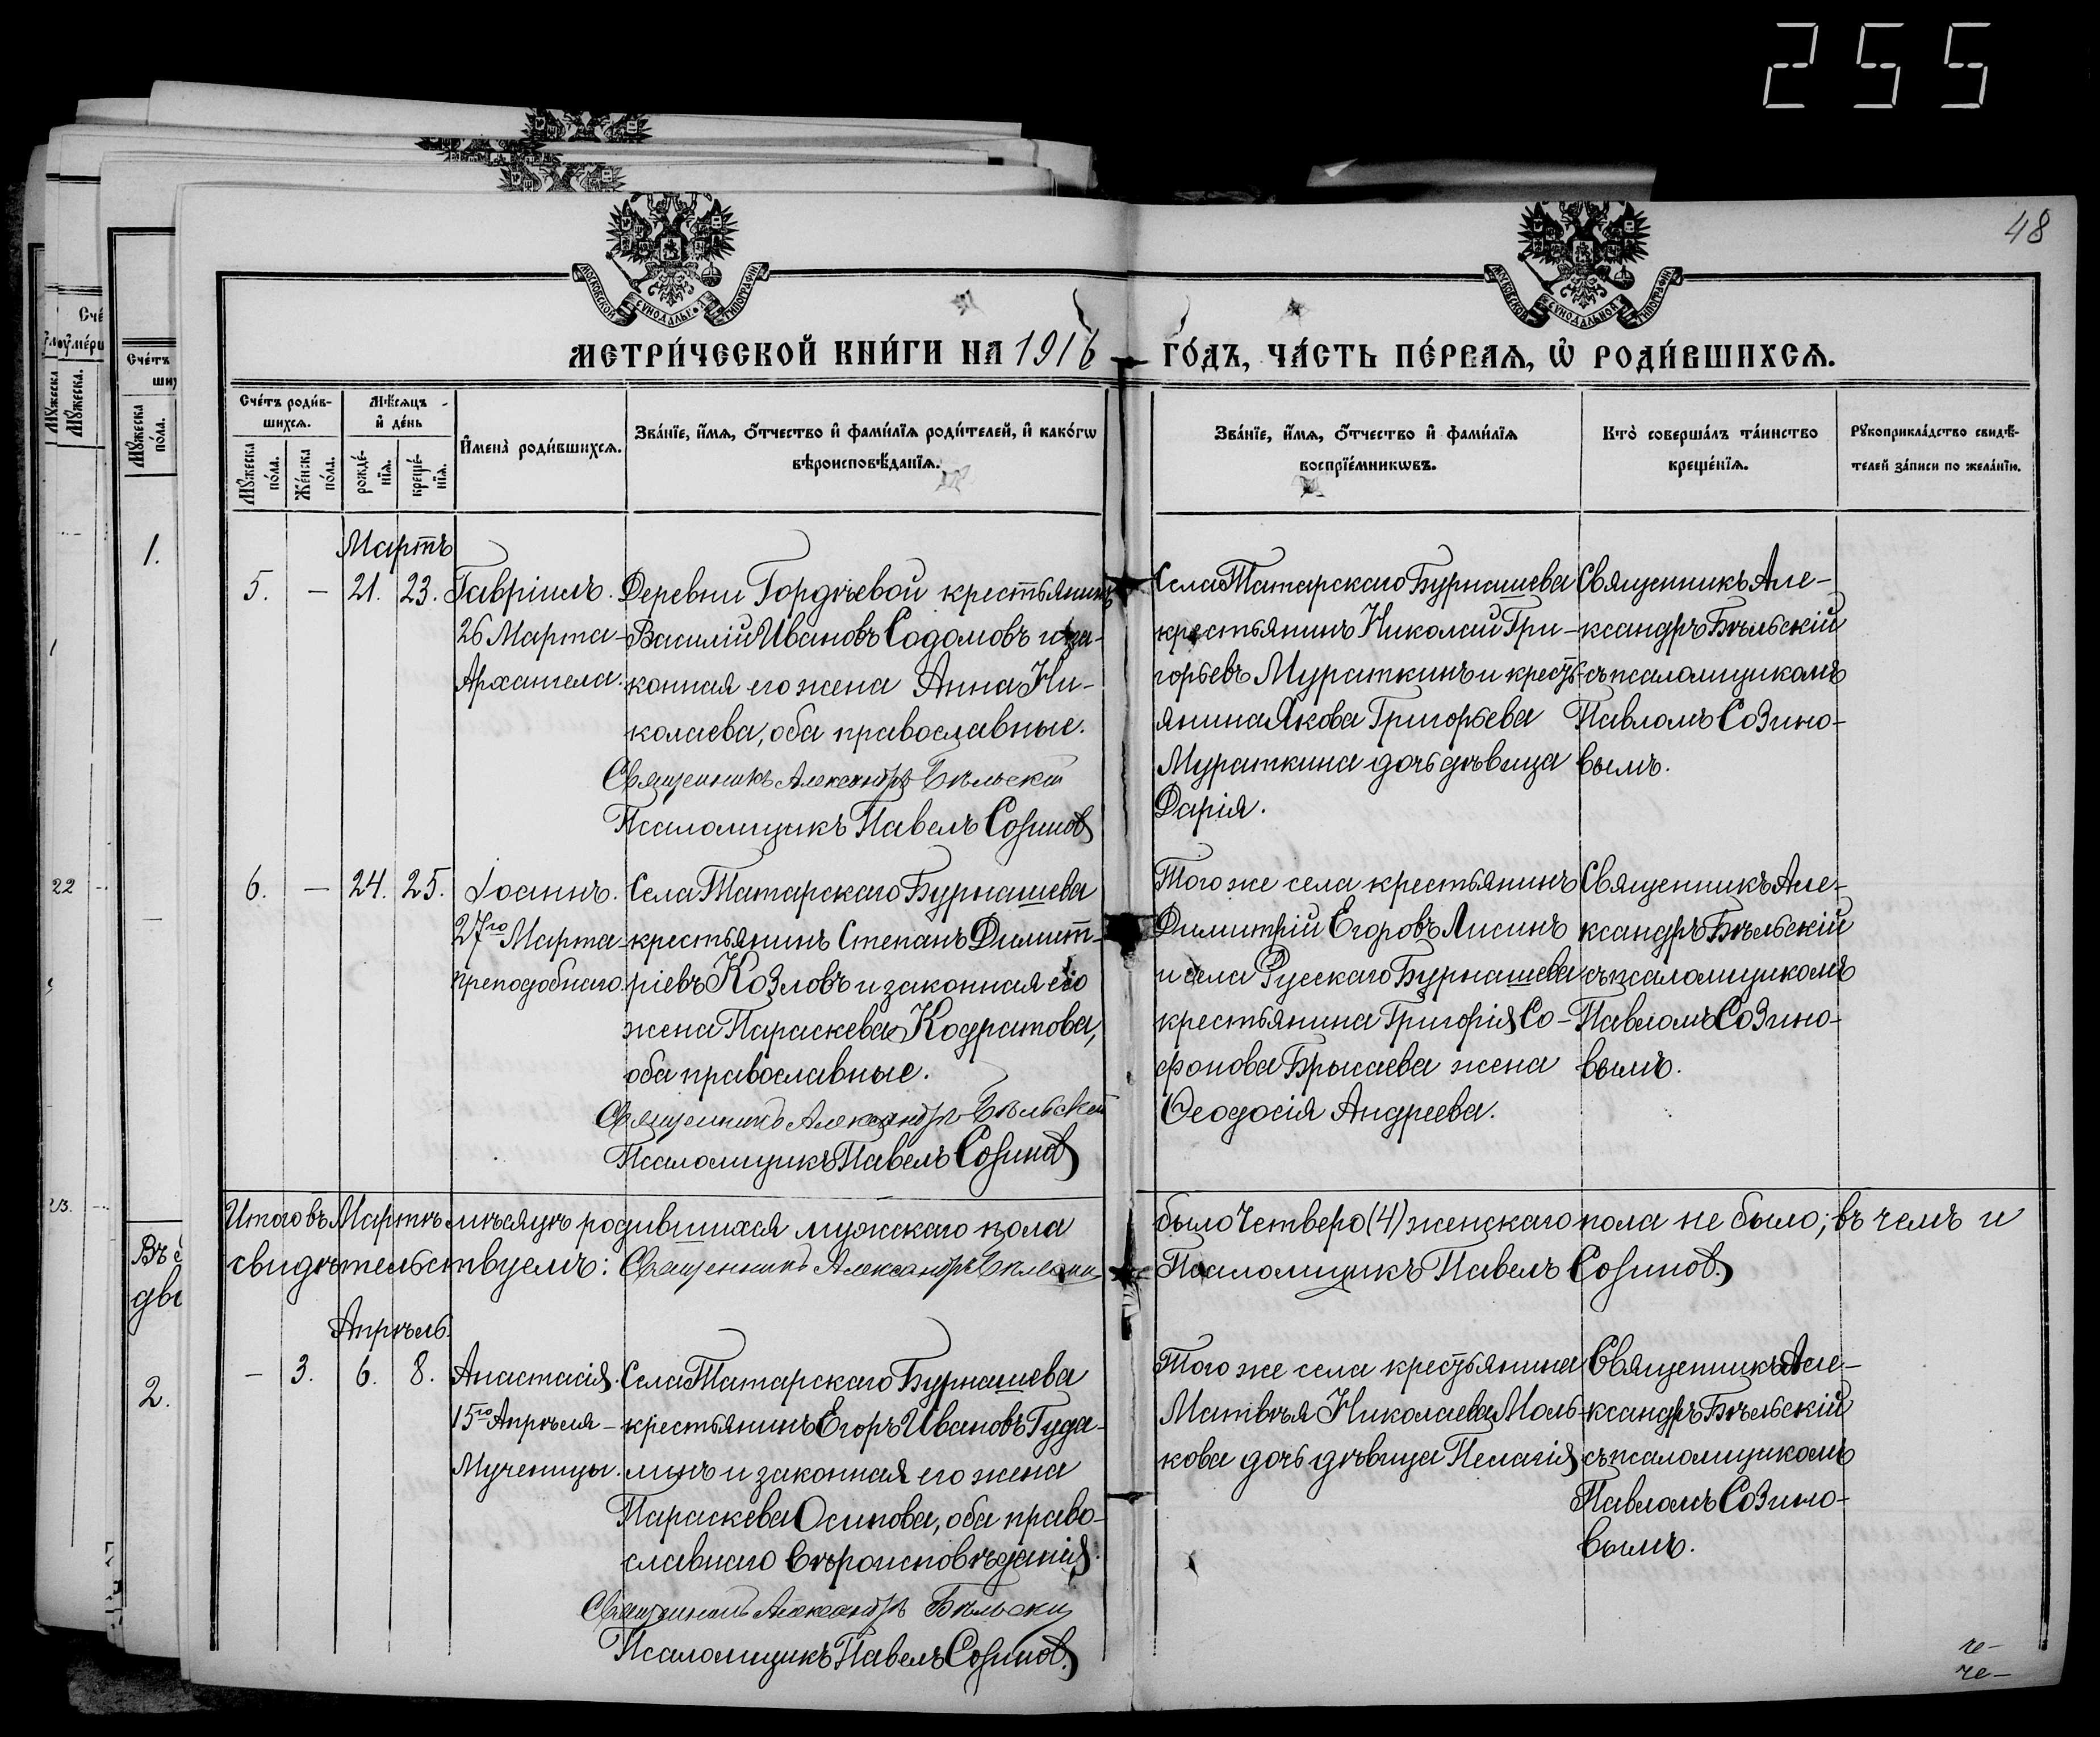 255
48
МОСКОВСКОЙ СѴНОДАЛЬНОЙ ТИПОГРАФІИ
МОСКОВСКОЙ СѴНОДАЛЬНОЙ ТИПОГРАФІИ
МЕТРИ́ЧЕСКОЙ КНИ́ГИ НА 1916 ГО́ДЪ, ЧА́СТЬ ПЕ́РВАѦ, Ѡ҆ РОДИ́ВШИХСѦ.
Сче́тъ роди́в-
шихсѧ.
Мꙋ́жеска по́ла.
Же́нска по́ла.
Мѣ́сѧцъ
и҆ де́нь
рожде́-
нїѧ.
креще́-
нїѧ.
И҆мена̀ роди́вшихсѧ.
Зва́нїе, и҆́мѧ, ѻ҆́тчество и҆ фами́лїѧ роди́телей, и҆ како́гѡ
вѣроисповѣ́данїѧ.
Зва́нїе, и҆́мѧ, ѻ҆́тчество и҆ фами́лїѧ
воспрїе́мникѡвъ.
Кто̀ соверша́лъ та́инство
креще́нїѧ.
Рꙋкоприкла́дство свидѣ́-
телей за́писи по жела́нїю.
Мартъ
5. — 21. 23.
Гавріилъ.
26 Марта
Архангела.
Деревни Гордѣевой крестьянинъ
Василій Ивановъ Содомовъ и за-
конная его жена Анна Ни-
колаева, оба православные.
Священникъ Александръ Бѣльскій
Псаломщикъ Павелъ Созиновъ
Села Татарскаго Бурнашева
крестьянинъ Николай Гри-
горьевъ Мураткинъ и кресть-
янина Якова Григорьева
Мураткина дочь дѣвица
Дарія.
Священникъ Але-
ксандръ Бѣльскій
съ псаломщикомъ
Павломъ Созино-
вымъ.
6. — 24. 25.
Іоаннъ.
27го Марта
преподобнаго.
Села Татарскаго Бурнашева
крестьянинъ Степанъ Димит-
ріевъ Козловъ и законная его
жена Параскева Кодратова,
оба православные.
Священникъ Александръ Бѣльскій
Псаломщикъ Павелъ Созиновъ
Того же села крестьянинъ
Димитрій Егоровъ Лисинъ
и села Русскаго Бурнашева
крестьянина Григорія Со-
фонова Брысаева жена
Ѳеодосія Андреева.
Священникъ Але-
ксандръ Бѣльскій
съ псаломщикомъ
Павломъ Созино-
вымъ.
Итого въ Мартѣ мѣсяцѣ родившихся мужскаго пола было Четверо (4) женскаго пола не было; въ чемъ и
свидѣтельствуемъ: Священникъ Александръ Бѣльскій Псаломщикъ Павелъ Созиновъ.
Апрѣль.
— 3. 6. 8.
Анастасія.
15го Апрѣля
Мученицы.
Села Татарскаго Бурнашева
крестьянинъ Егоръ Ивановъ Гуда-
линъ и законная его жена
Параскева Осипова, оба право-
славнаго вѣроисповѣданія.
Священникъ Александръ Бѣльскій
Псаломщикъ Павелъ Созиновъ.
Того же села крестьянина
Матвѣя Николаева Моль-
кова дочь дѣвица Пелагія
Священникъ Але-
ксандръ Бѣльскій
съ псаломщикомъ
Павломъ Созино-
вымъ.
че-
че-
1.
2.
22
23.
Сче́тъ
Мꙋ́жеска
по́ла.